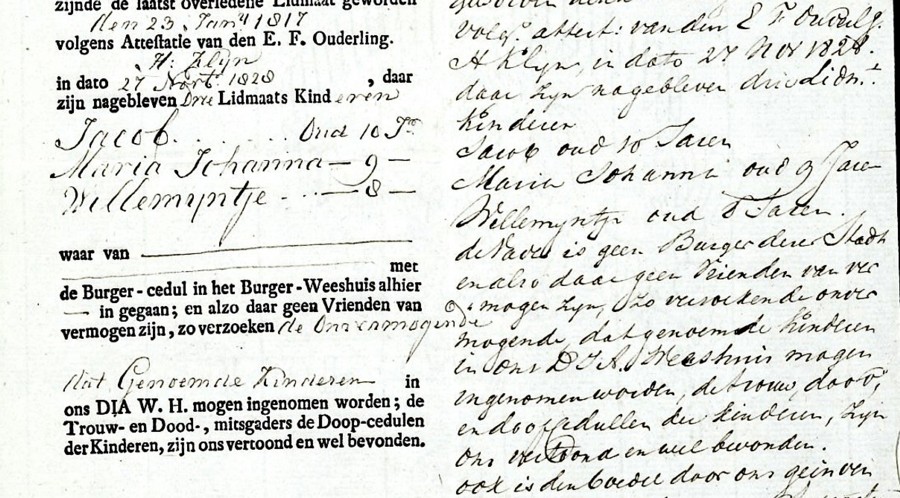 zijnde de laatst overledene Lidmaat geworden
den 23 Junij 1817
volgens Attestatie van den E. F. Ouderling.
H: Klijn
in dato 27 Novr. 1828 , daar
zijn nagebleven Drie Lidmaats Kinderen
Jacob. Oud 10 Jr.
Maria Johanna — 9 —
Willemyntje — 8 —
waar van
met
de Burger-cedul in het Burger-Weeshuis alhier
— in gegaan; en alzo daar geen Vrienden van
vermogen zijn, zo verzoeken de Onvermogende
dat Genoemde Kinderen in
ons DIA W. H. mogen ingenomen worden; de
Trouw- en Dood-, mitsgaders de Doop-cedulen
der Kinderen, zijn ons vertoond en wel bevonden.
volgs. attest: van den E F Ouderlg.
H Klyn, in dato 27 Nov 1828.
daar zyn nagebleven drie Lidm.t
Kinderen
Jacob oud 10 Jaren
Maria Johanna oud 9 Jare
Willemyntje oud 8 Jaren.
de Vader is geen Burger dezer Stadt
en also daar geen Vrienden van ver
mogen zyn, zo versoeken de onver
mogende, dat genoemde kinderen
in ons D.I.A. Weeshuis mogen
ingenomen worden, de trouw, dood,
en doopcedullen der kinderen, zyn
ons vertoond en wel bevonden.
ook is den boedel door ons geinven